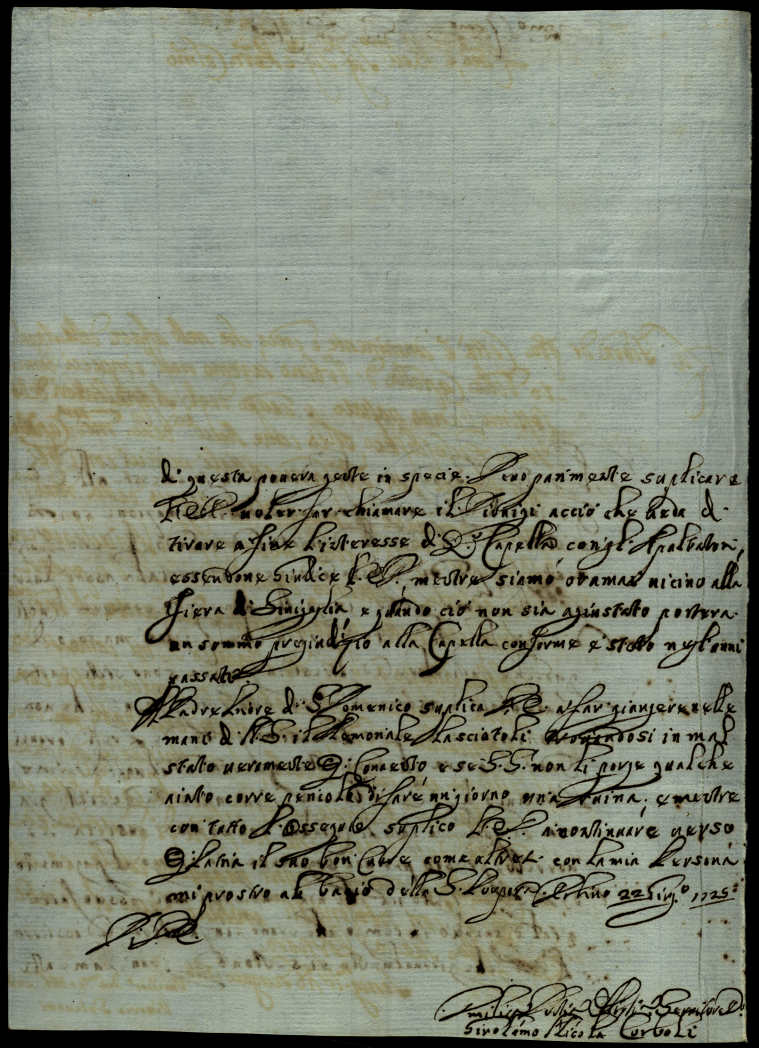 di questa povera gente in specie. Devo parimente suplicare
V.E. voler far chiamare il Dionigi acciò che veda di
tirare a fine l'interesse di Capella con gl'Apaltatori,
essendone Giudice V.E. mentre siamo oramai vicino alla
fiera di Sinigaglia e quando ciò non sia agiustato portera
un sommo pregiudizio alla Capella conforme è stato negl'anni
passati.
Il Padre Priore di S. Domenico suplica V.E. a far giungere nelle
mani di N.S. il Memoriale lasciatoli trovandosi in mal
stato veramente il Convento e se S.S. non li porge qualche
aiuto corre pericolo di fare un giorno una ruina, e mentre
con tutto l'ossequio suplico V.E. a continuare verso
la Patria il suo bon Cuore come altresì con la mia Persona
mi prostro al bacio della S. Porpora Urbino 22 Giug.º 1725
D.V.E.
Girolamo Nicola Corboli